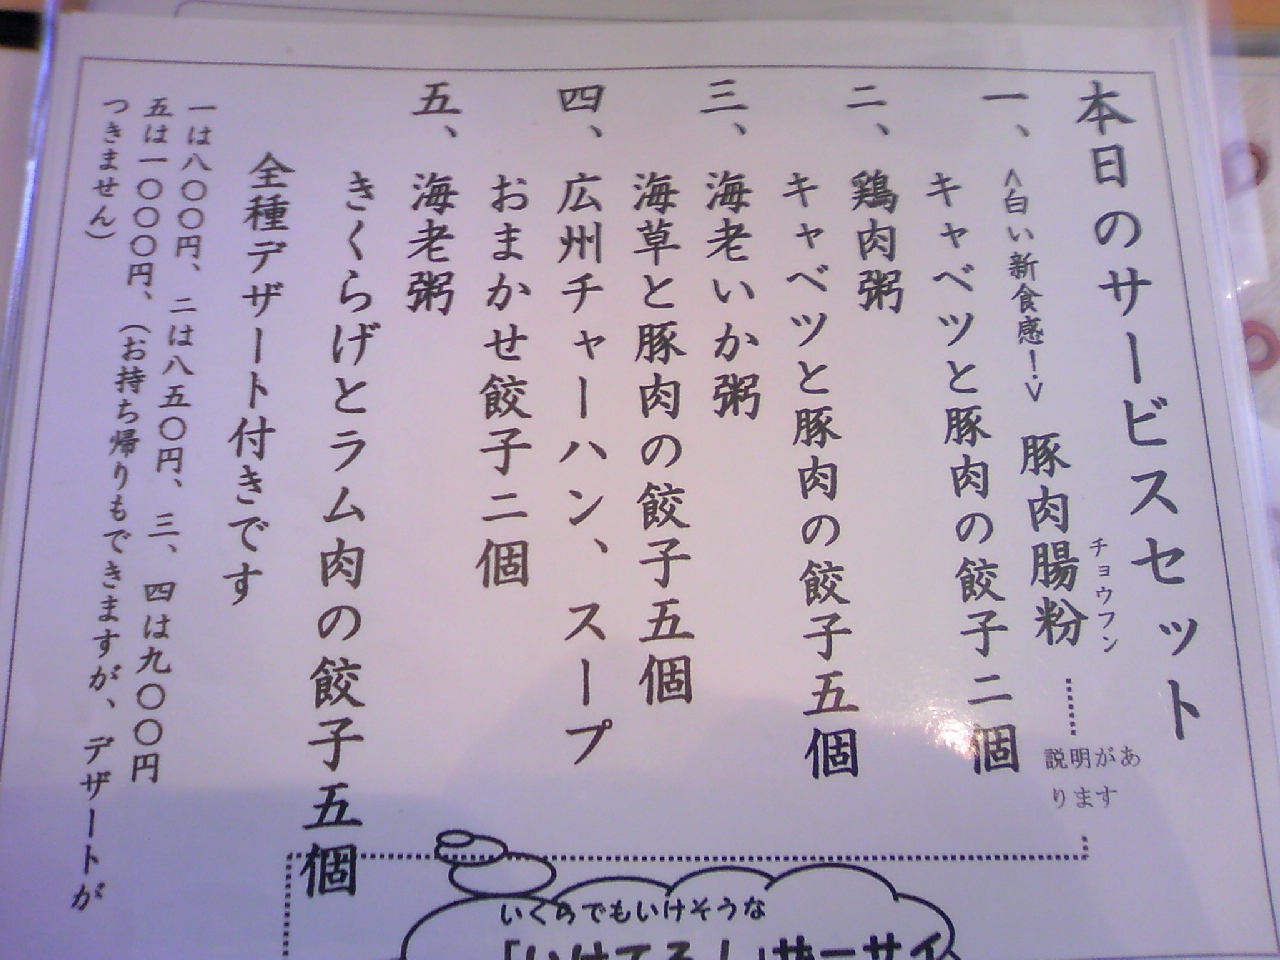 本日のサービスセット
一、<白い新食感！> 豚肉腸粉
チョウフン
説明があ
ります
キャベツと豚肉の餃子二個
二、鶏肉粥
キャベツと豚肉の餃子五個
三、海老いか粥
海草と豚肉の餃子五個
四、広州チャーハン、スープ
おまかせ餃子二個
五、海老粥
きくらげとラム肉の餃子五個
全種デザート付きです
一は八〇〇円、二は八五〇円、三、四は九〇〇円
五は一〇〇〇円、（お持ち帰りもできますが、デザートが
つきません）
いくらでもいけそうな